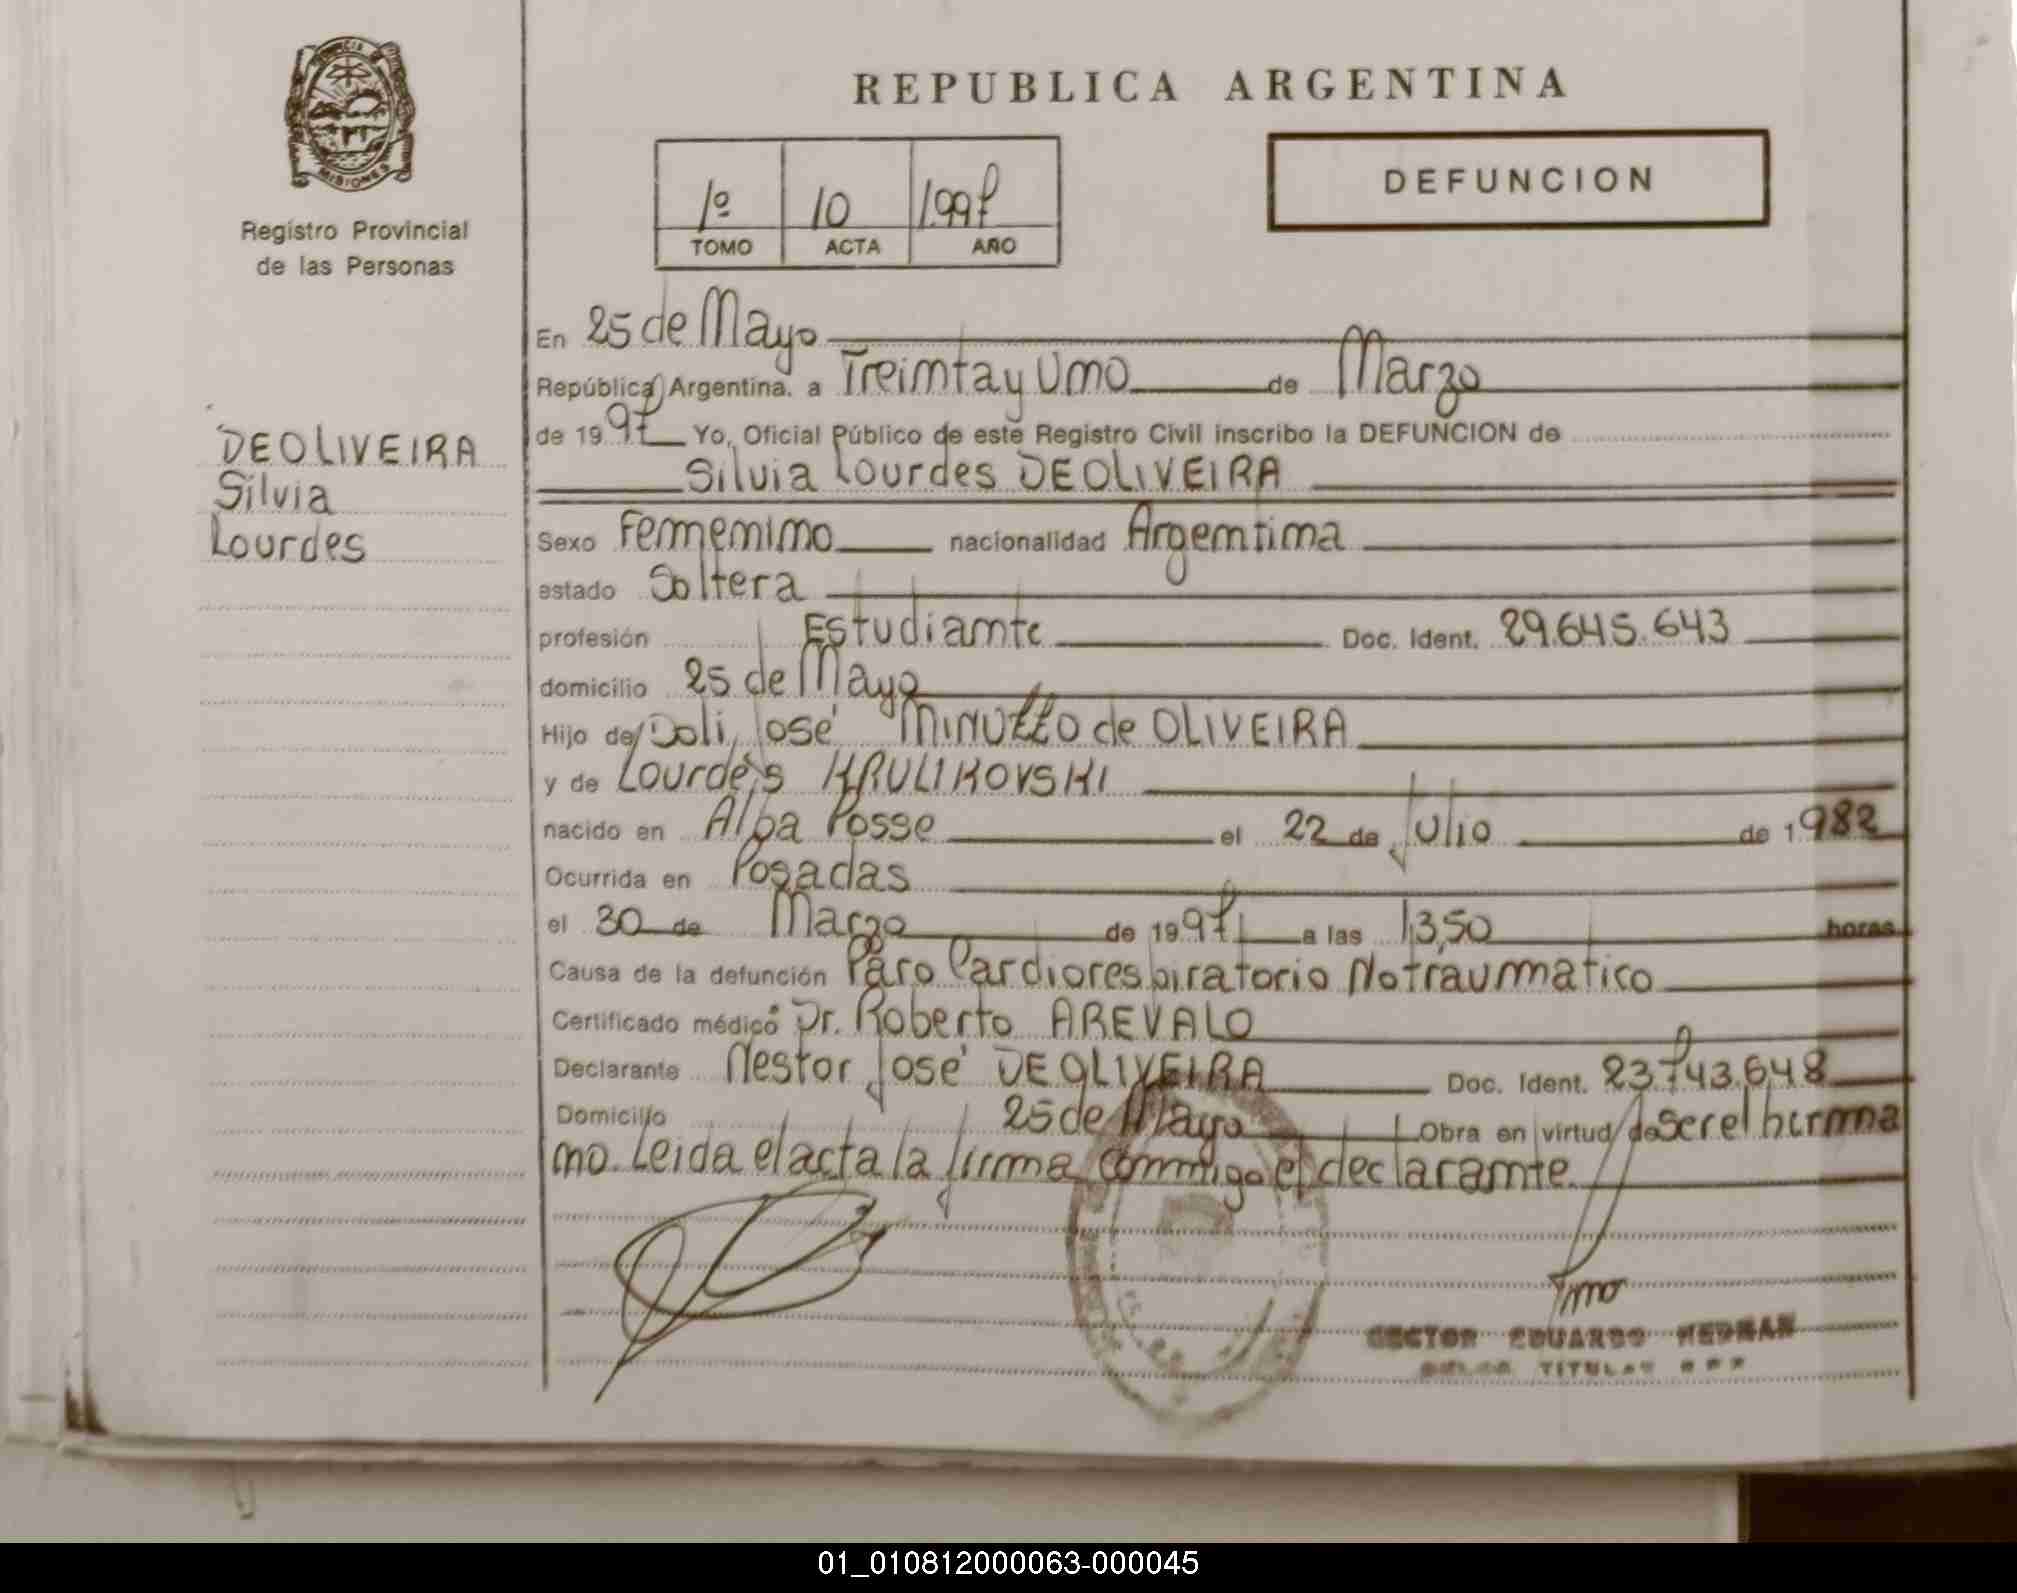 REPUBLICA ARGENTINA
MISIONES
Registro Provincial
de las Personas
1º 10 1.997
TOMO ACTA AÑO
DEFUNCION
DEOLIVEIRA
Silvia
Lourdes
En 25 de Mayo
República Argentina. a Treinta y Uno de Marzo
de 1997 Yo, Oficial Público de este Registro Civil inscribo la DEFUNCION de
Silvia Lourdes DEOLIVEIRA
Sexo Femenino nacionalidad Argentina
estado Soltera
profesión Estudiante Doc. Ident. 29.645.643
domicilio 25 de Mayo
Hijo de Doli José MINUZZO de OLIVEIRA
y de Lourdes KRULIKOVSKI
nacido en Alba Posse el 22 de Julio de 1982
Ocurrida en Posadas
el 30 de Marzo de 1997 a las 13,50 horas
Causa de la defunción Paro Cardiorespiratorio No traumatico
Certificado médico Dr. Roberto AREVALO
Declarante Nestor José DEOLIVEIRA Doc. Ident. 23.743.648
Domicilio 25 de Mayo Obra en virtud de Ser el herma
no. Leida el acta la firma conmigo el declarante.
EDUARDO
TITULAR
01_010812000063-000045